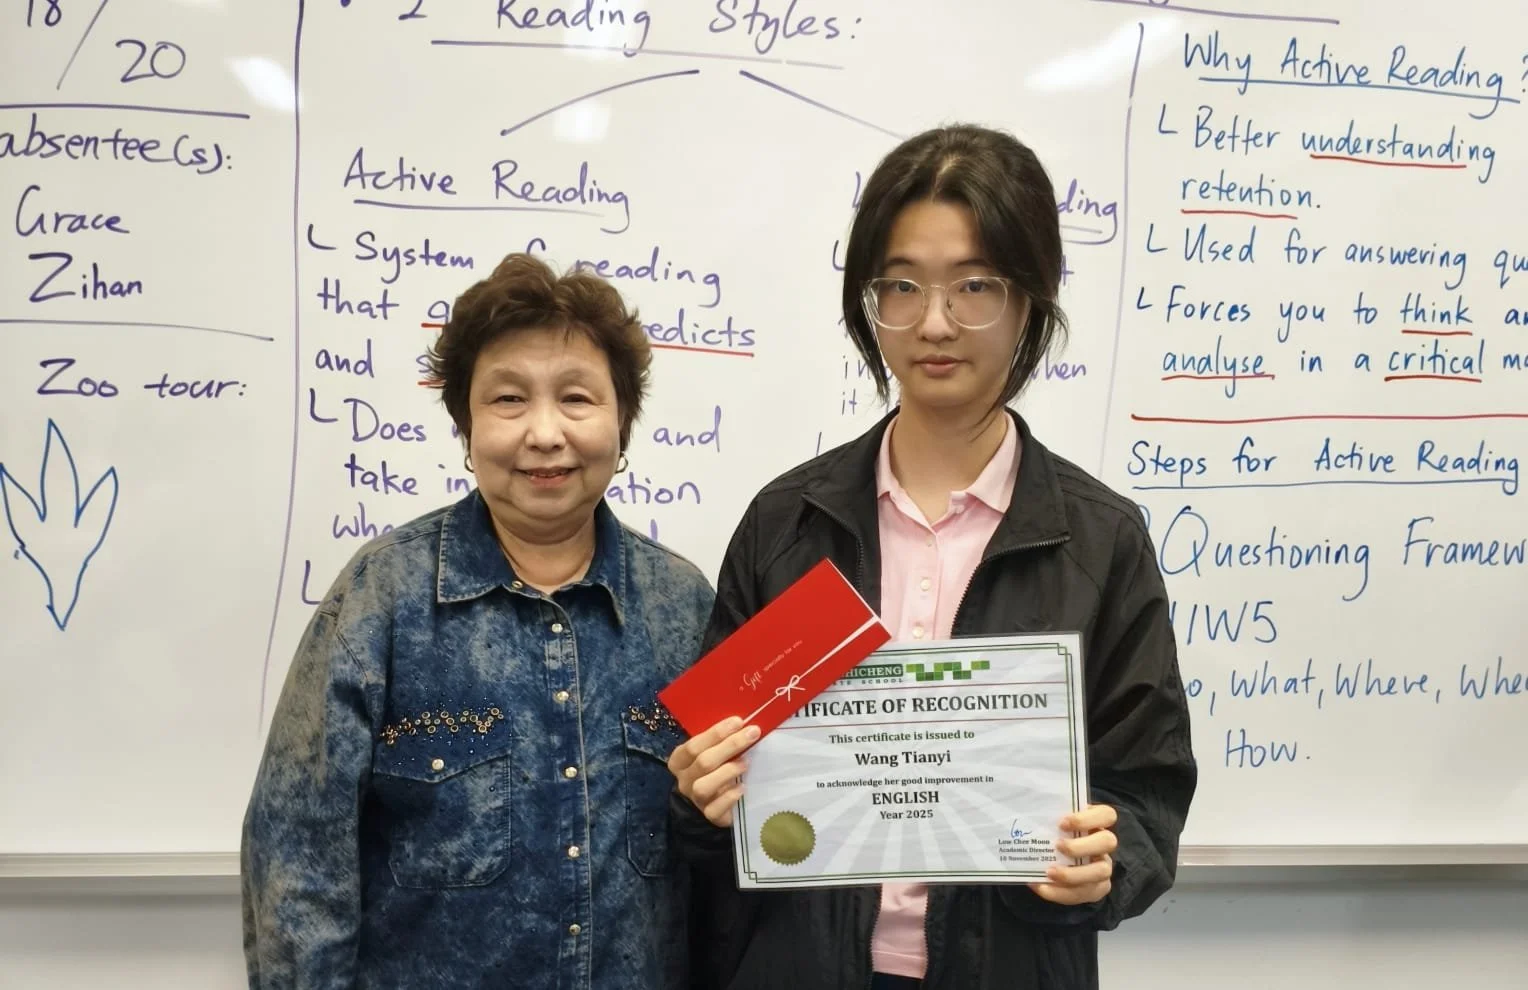 18/20
absentee(s):
Grace
Zihan
Zoo tour:
2 Reading Styles:
Active Reading
System reading
that redicts
and
Does and
take in ation
ding
when
it
Why Active Reading?
Better understanding
retention.
Used for answering
Forces you to think
analyse in a critical
Steps for Active Reading
Questioning Framew
1W5
What, Where,
How.
a Gift specially for you
HICHENG
SCHOOL
TIFICATE OF RECOGNITION
This certificate is issued to
Wang Tianyi
to acknowledge her good improvement in
ENGLISH
Year 2025
Low Chee Moon
Academic Director
10 November 2025